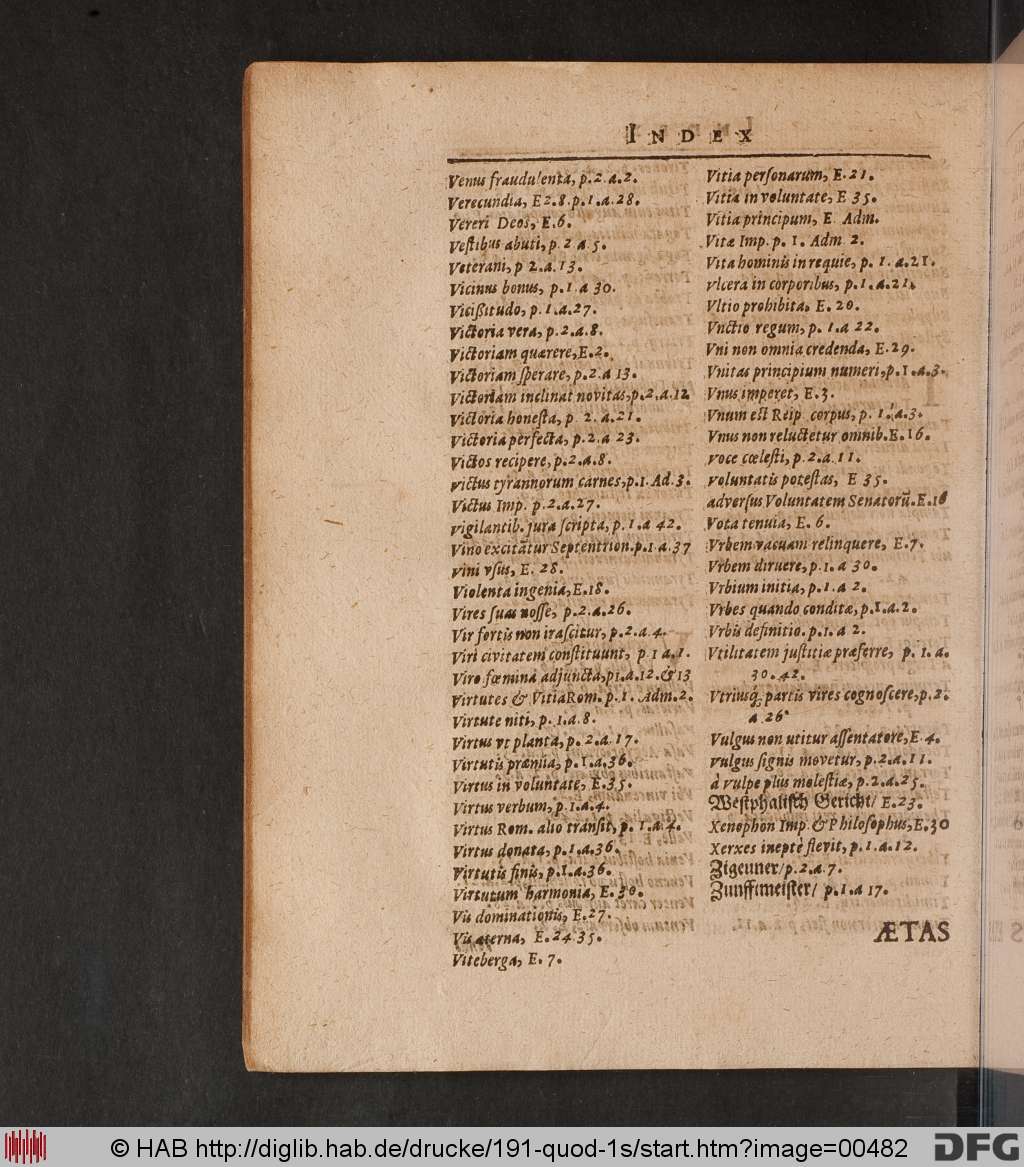 INDEX
Venus fraudulenta, p. 2. a. 2.
Verecundia, E 2. 8. p. 1. a. 28.
Vereri Deos, E. 6.
Veſtibus abuti, p. 2 a. 5.
Veterani, p 2. a. 13.
Vicinus bonus, p. 1. a 30.
Viciſsitudo, p. 1. a. 27.
Victoria vera, p. 2. a. 8.
Victoriam quærere, E. 2.
Victoriam ſperare, p. 2. a 13.
Victoriam inclinat novitas, p. 2. a. 12
Victoria honeſta, p. 2. a. 21.
Victoria perfecta, p. 2. a 23.
Victos recipere, p. 2. a. 8.
victus tyrannorum carnes, p. 1. Ad. 3.
Victus Imp. p. 2. a. 27.
vigilantib. jura ſcripta, p. 1. a 42.
Vino excitātur Septentrion. p. 1. a. 37
vini vſus, E. 28.
Violenta ingenia, E. 18.
Vires ſuas noſſe, p. 2. a. 26.
Vir fortis non iraſcitur, p. 2. a 4.
Viri civitatem conſtituunt, p 1 a. 1.
Viro fœmina adjuncta, p 1. a. 12. & 13
Virtutes & Vitia Rom. p. 1. Adm. 2.
Virtute niti, p. 1. a. 8.
Virtus vt planta, p. 2. a. 17.
Virtutis præmia, p. 1. a. 36.
Virtus in voluntate, E. 35.
Virtus verbum, p. 1. a. 4.
Virtus Rom. alio tranſit, p. 1. a. 4.
Virtus donata, p. 1. a. 36.
Virtutis finis, p. 1. a. 36.
Virtutum harmonia, E. 30.
Vis dominationis, E. 27.
Vis æterna, E. 24 35.
Viteberga, E. 7.
Vitia perſonarum, E. 21.
Vitia in voluntate, E 35.
Vitia principum, E. Adm.
Vitæ Imp. p. 1. Adm 2.
Vita hominis in requie, p. 1. a. 21.
vlcera in corporibus, p. 1. a. 21.
Vltio prohibita, E. 20.
Vnctio regum, p. 1. a 22.
Vni non omnia credenda, E. 29.
Vnitas principium numeri, p. 1. a. 3.
Vnus imperet, E. 3.
Vnum eſt Reip. corpus, p. 1. a. 3.
Vnus non reluctetur omnib. E. 16.
voce cœleſti, p. 2. a. 11.
voluntatis poteſtas, E 35.
adverſus Voluntatem Senatorū. E. 16
Vota tenuia, E. 6.
Vrbem vacuam relinquere, E. 7.
Vrbem diruere, p. 1. a 30.
Vrbium initia, p. 1. a 2.
Vrbes quando conditæ, p. 1. a. 2.
Vrbis definitio. p. 1. a 2.
Vtilitatem juſtitiæ præferre, p. 1. a.
30. 42.
Vtriusq; partis vires cognoſcere, p. 2.
a 26.
Vulgus non utitur aſſentatore, E. 4.
vulgus ſignis movetur, p. 2. a. 11.
à vulpe plus moleſtiæ, p. 2. a. 25.
Weſtphaliſch Gericht/ E. 23.
Xenophon Imp. & Philoſophus, E. 30
Xerxes ineptè flevit, p. 1. a. 12.
Zigeuner/ p. 2. a. 7.
Zunfftmeiſter/ p. 1. a 17.
ÆTAS
© HAB http://diglib.hab.de/drucke/191-quod-1s/start.htm?image=00482
DFG